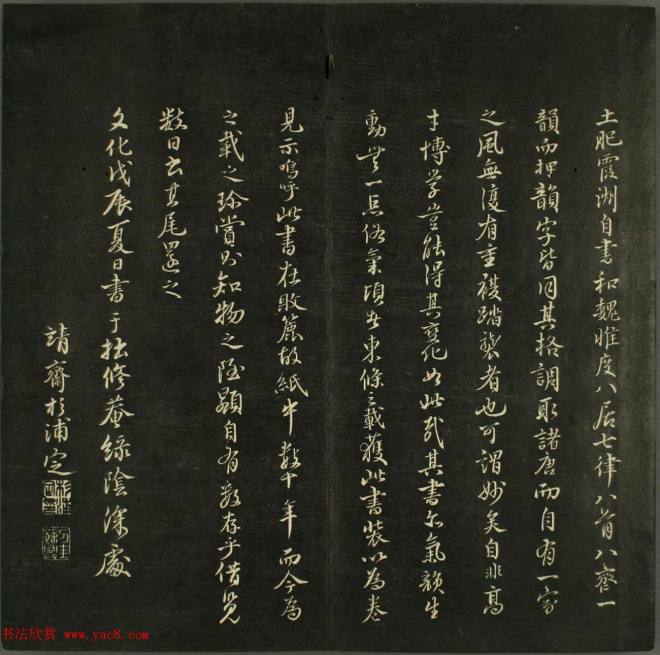 土肥霞洲自書和魏惟度八居七律八首八齊一
韻而押韻字皆同其格調取諸唐而自有一家
之風無復有重複踏襲者也可謂妙矣自非高
才博学豈能得其變化如此哉其書亦氣韻生
動無一点俗氣頃者東條之載獲此書装以為卷
見示嗚呼此書在敗簏故紙中數十年而今為
之載之珍賞則知物之隱顕自有數存乎借覽
數日書其尾還之
文化戊辰夏日書于拙修菴緑陰深處
靖齋杉浦定
书法欣赏 www.yac8.com